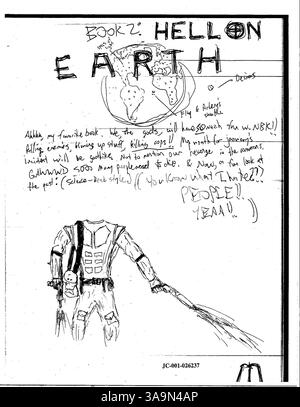 BOOK 2: HELL ON
EARTH
Deimos
Ahhhh, my favorite book. We, the gods, will have so much fun w. NBK!!
Killing enemies, blowing up stuff, killing cops!! My wrath for january's
incident will be godlike. Not to mention our revenge in the commons.
GAWWWD sooo many people need to die. & Now, a fun look at
the past!
((You know what I hate!??
PEOPLE!!
YEAA!! ))
JC-001-026237